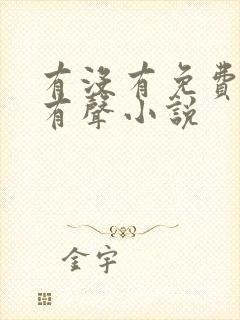 有沒有免費
有聲小說
金宇